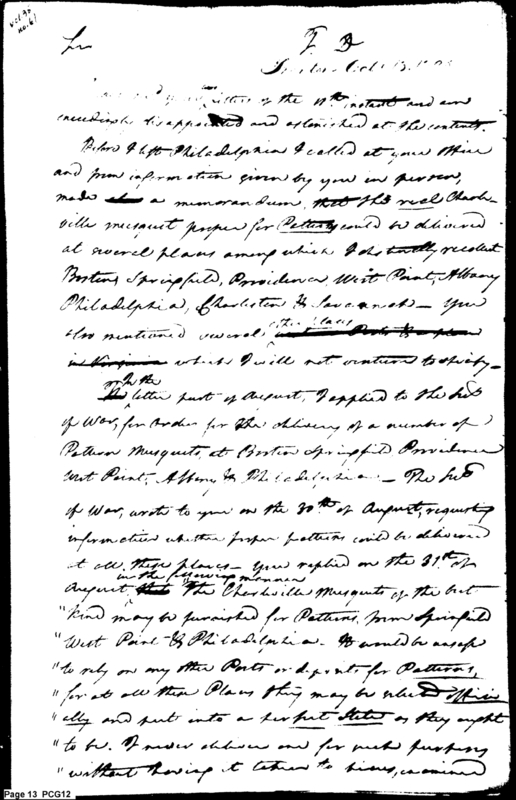 Vol. 35
no. 61
Sir
T. D
Octr 13.
your letters of the 11th instant and am
exceedingly disappointed and astonished at the contents.
Before I left Philadelphia I called at your Office
and from information given by you in person,
made a memorandum, that the real Charle-
ville musquet proper for Patterns could be delivered
at several places among which I distinctly recollect
Boston, Springfield, Providence West Point, Albany
Philadelphia, Charleston & Savannah — You
also mentioned several other places
in Virginia which I will not venture to specify —
In the
latter part of August, I applied to the Secy
of War, for Order for the delivery of a number of
Pattern Musquets, at Boston Springfield Providence
West Point, Albany & Philadelphia — The Secy
of War, wrote to you on the 30th of August, requesting
information whether proper patterns could be delivered
at all these places — You replied on the 31st of
in the following manner
August, The Charleville Musquets of the best
"kind may be furnished for Patterns, from Springfield
"West Point & Philadelphia. It would be unsafe
"to rely on any other Posts or deposits for Patterns,
"for at all these Places they may be selected offici
"ally and put into a perfect State as they ought
"to be. I never deliver one for such purposes
"without having it taken to pieces, examined
Page 13 PCG12